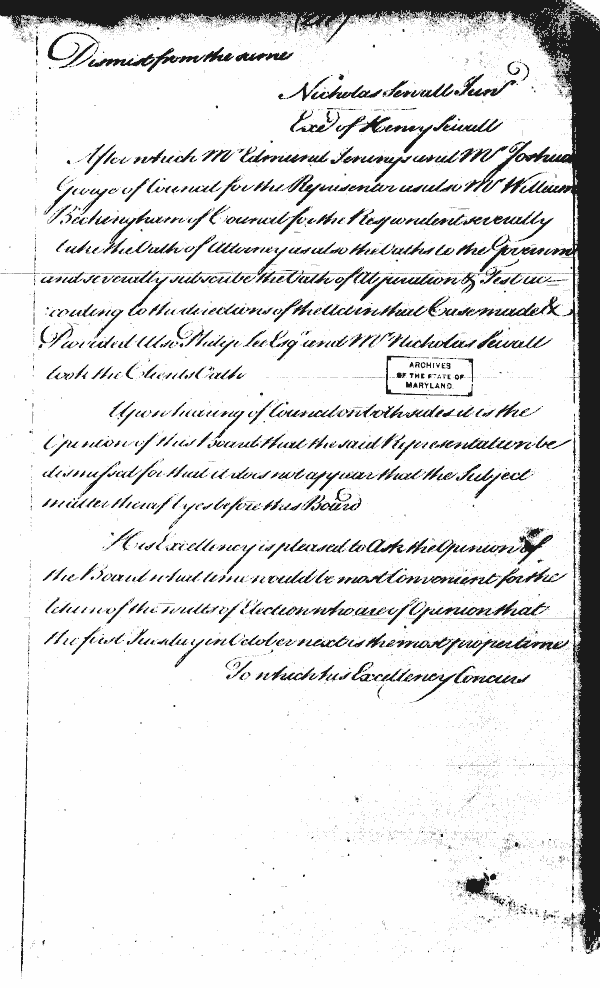 Dismist from the same
Nicholas Sewall Junr
Exer of Henry Sewall
After which Mr Edmund Jenings and Mr Joshua
George of Council for the Representor as also Mr William
Beckingham of Council for the Respondent severally
take the Oath of Attorney as also the Oaths to the Governmt
and severally subscribe the Oath of Abjuration & Test ac-
cording to the directions of the Act in that Case made &
Provided Also Philip Lee Esqr and Mr Nicholas Sewall
took the Clients Oath
ARCHIVES
OF THE STATE OF
MARYLAND
Upon hearing of Council on both sides it is the
Opinion of this Board that the said Representation be
dismissed for that it does not appear that the Subject
matter thereof lyes before this Board
His Excellency is pleased to Ask the Opinion of
the Board what time would be most Convenient for the
return of the writts of Election who are of Opinion that
the first Tuesday in October next is the most proper time
To which his Excellency Concurs